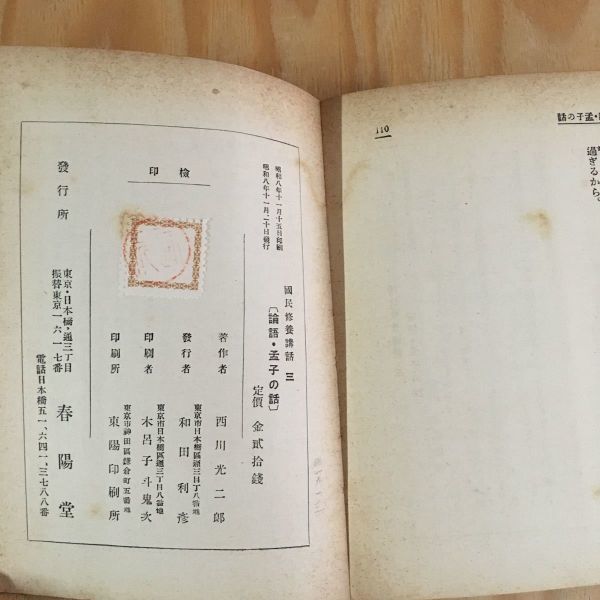 110
孟子の話
過ぎるから。
昭和八年十一月十五日印刷
昭和八年十一月二十日發行
檢印
國民修養講話 三
〔論語・孟子の話〕
定價 金貳拾錢
著作者 西川光二郎
東京市日本橋區通三丁目八番地
發行者 和田利彦
東京市日本橋區通三丁目八番地
印刷者 木呂子斗鬼次
東京市神田區鎌倉町五番地
印刷所 東陽印刷所
發行所
東京・日本橋・通三丁目
振替東京一六一七番
春陽堂
電話日本橋五一、六四一、三七八八番